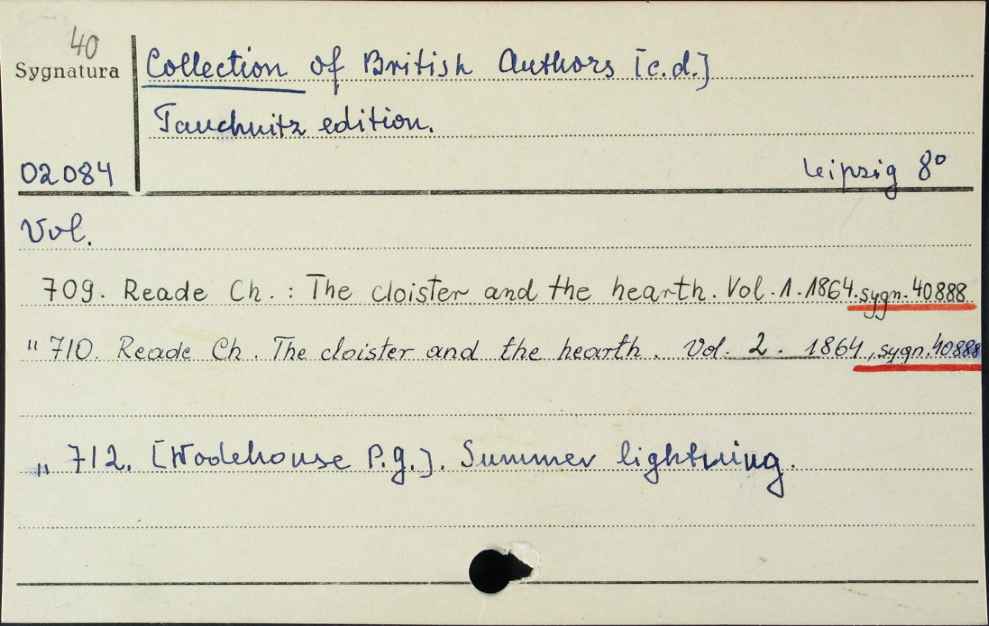 40
Sygnatura
Collection of British Authors [c.d.]
Tauchnitz edition.
02084
Leipzig 8°
Vol.
709. Reade Ch. : The cloister and the hearth. Vol. 1. 1864. sygn. 40888
" 710. Reade Ch. The cloister and the hearth. Vol. 2. 1864, sygn. 40888
" 712. [Wodehouse P.g.]. Summer lightning.